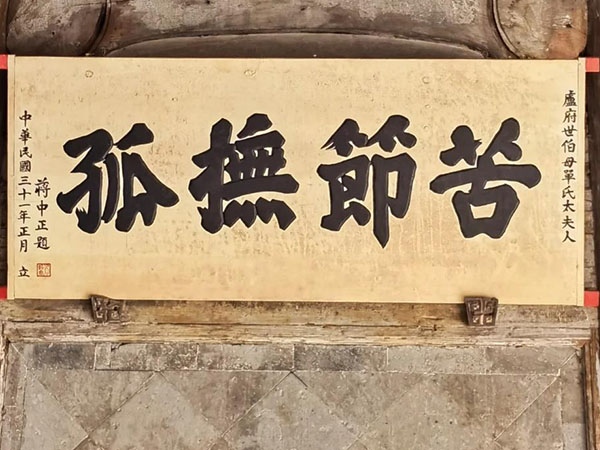 盧府世伯母單氏太夫人
苦節撫孤
蔣中正題
中華民國三十一年正月立